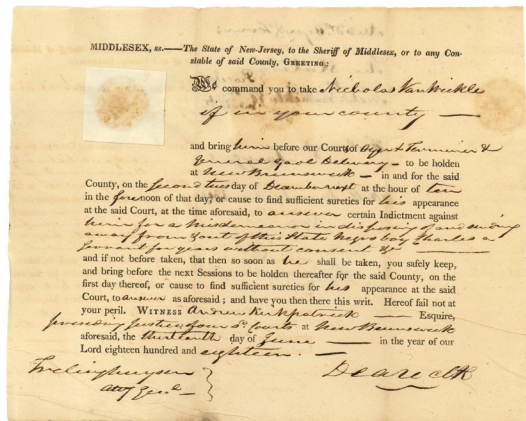 MIDDLESEX, ss.——The State of New-Jersey, to the Sheriff of Middlesex, or to any Con-
stable of said County, GREETING:
We command you to take Nicholas Van Wickle
if in your county —
and bring him before our Court of Oyer & Terminer &
General Gaol Delivery — to be holden
at New Brunswick — in and for the said
County, on the Second tuesday of December next at the hour of ten
in the forenoon of that day; or cause to find sufficient sureties for his appearance
at the said Court, at the time aforesaid, to answer certain Indictment against
him for a Misdemeanor in disposing of and sending
away from & out of this State Negro boy Charles a
Servant for years without consent &c —
and if not before taken, that then so soon as he shall be taken, you safely keep,
and bring before the next Sessions to be holden thereafter for the said County, on the
first day thereof, or cause to find sufficient sureties for his appearance at the said
Court, to answer as aforesaid; and have you then there this writ. Hereof fail not at
your peril. WITNESS Andrew Kirkpatrick — Esquire,
presiding Justice of our sd Court at New Brunswick
aforesaid, the thirteenth day of June — in the year of our
Lord eighteen hundred and eighteen. —
Frelinghuysen
Atty Genl
Deare Clk